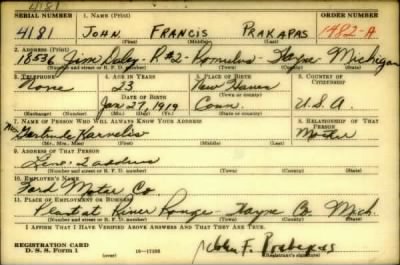 4181
SERIAL NUMBER 1. NAME (Print) ORDER NUMBER
4181 JOHN FRANCIS PRAKAPAS 1982-A
(First) (Middle) (Last)
2. ADDRESS (Print)
18536 Jim Daley - R#2 - Romulus - Wayne Michigan
(Number and street or R. F. D. number) (Town) (County) (State)
3. TELEPHONE 4. AGE IN YEARS 5. PLACE OF BIRTH 6. COUNTRY OF CITIZENSHIP
None 23 New Haven
DATE OF BIRTH (Town or county)
Jan 27, 1919 Conn. U.S.A.
(Exchange) (Number) (Mo.) (Day) (Yr.) (State or country)
7. NAME OF PERSON WHO WILL ALWAYS KNOW YOUR ADDRESS 8. RELATIONSHIP OF THAT PERSON
Mrs Gertrude Karnelis Mother
(Mr., Mrs., Miss) (First) (Middle) (Last)
9. ADDRESS OF THAT PERSON
address
(Number and street or R. F. D. number) (Town) (County) (State)
10. EMPLOYER'S NAME
Ford Motor Co.
11. PLACE OF EMPLOYMENT OR BUSINESS
Plant at River Rouge Wayne Co Mich.
(Number and street or R. F. D. number) (Town) (County) (State)
I AFFIRM THAT I HAVE VERIFIED ABOVE ANSWERS AND THAT THEY ARE TRUE.
REGISTRATION CARD John F. Prakapas
D. S. S. Form 1 (over) 16-17105 (Registrant's signature)